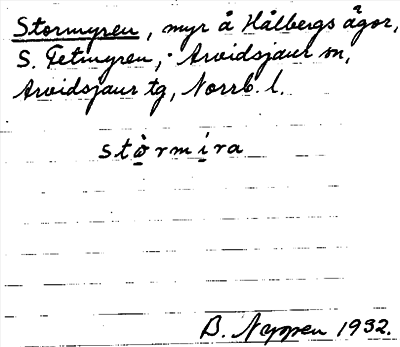 Stormyren, myr å Hålbergs ägor,
S. Tetmyren, Arvidsjaur sn,
Arvidsjaur tg, Norrb. l.
stò̲rmi̲ra
B. Nyppen 1932.